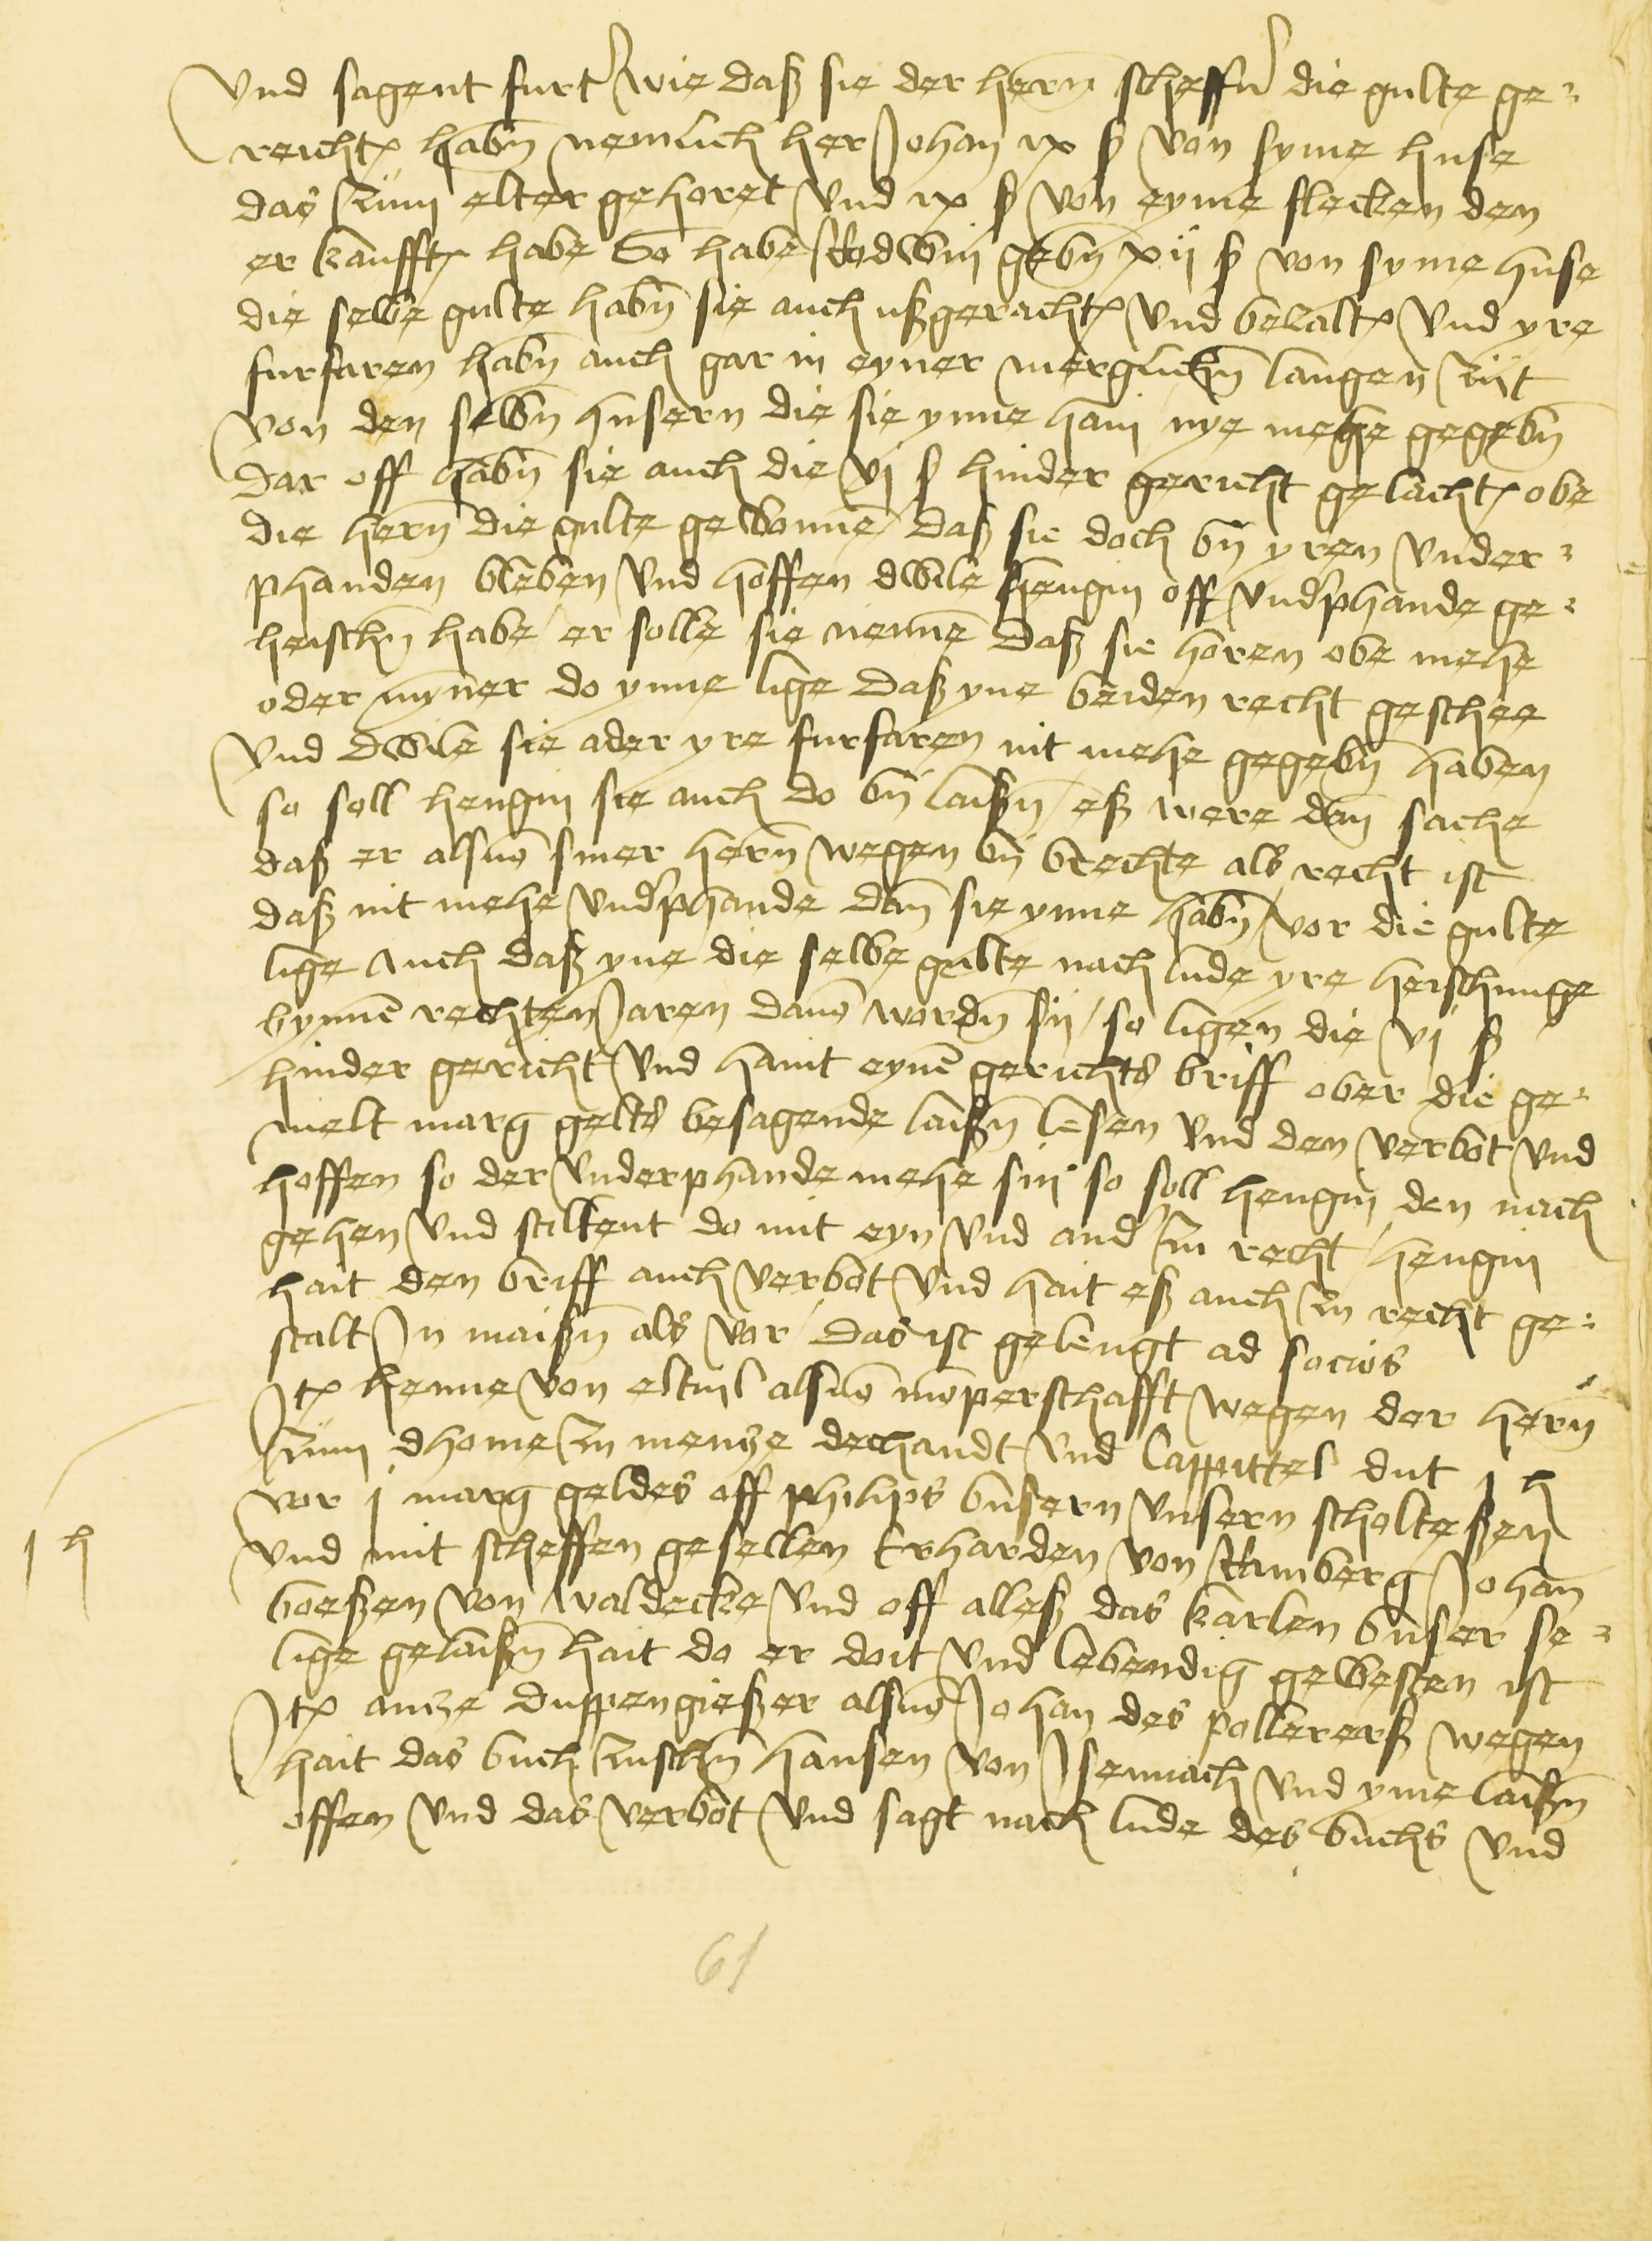 Vnd sagent furt wie daß sie der hern scheffn die gulte ge-
reicht habn nemlich her Johan ix ß von syme huse
das zum elter gehoret vnd ix ß von eyme flecken den
er kaufft habe So habe Rodwin gebn xij ß von syme huse
die selbe gulte habn sie auch ußgeracht vnd bezalt vnd yre
furfaren habn auch gar in eyner merglichn langen zijt
von den selbn husern die sie ynne han nye mehe gegebn
Dar off habn sie auch die vj ß hinder gericht gelacht obe
die hern die gulte gewonne daß sie doch by yren vnder-
phanden bleben vnd hoffen dwile Hengin off vnd'phande ge-
heischn habe er solle sie nenne daß sie horen obe mehe
oder myner do ynne lige Daß yne beiden recht geschee
Vnd dwile sie ader yre furfaren nit mehe gegebn haben
so soll hengin sie auch do by laißn eß were dan sache
daß er alsuo siner hern wegen by brechte als recht ist
daß nit mehe vnd'phande dan sie ynne habn vor die gulte
lige Auch daß yne die selbe gulte nach lude yre heischunge
bynne rechten Jaren dauo wordn sij so ligen die vj ß
hinder gericht vnd hant eyne gerichts briff ober die ge-
melt marg gelts besagende laißn lesen vnd den verbot vnd
hoffen so der vnderphande mehe sin so soll hengin den nach
gehen vnd staltent do mit eyn vnd and' zu recht hengin
hait den briff auch verbot vnd hait eß auch zu recht ge-
stalt In maißn als vor das ist gelengt ad socios
Jt henne von eltuil alsuo mo'perschafft wegen der hern
zum dhome zu mentze dechandt vnd Cappittel dut j h
vor j marg geldes off philips busern vnsern scholteßen
vnd mit scheffen gesellen Erharden von Ramberg Johan
boeßen von waldecke vnd off alleß das karlen buser se-
lige gelaißn hait do er doit vnd lebendig geweßen ist
Jt antze Duppengießer alsuo Johan des pollererß wegen
hait das buch zuschn hansen von Jsennach vnd yme laißn
offen vnd das verbot vnd sagt nach lude des buchs vnd
j h
61